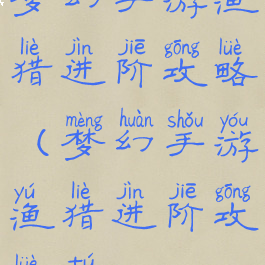 梦幻手游渔
liè jìn jiē gōng lüè
猎进阶攻略
mèng huàn shǒu yóu
（梦幻手游
yú liè jìn jiē gōng
渔猎进阶攻